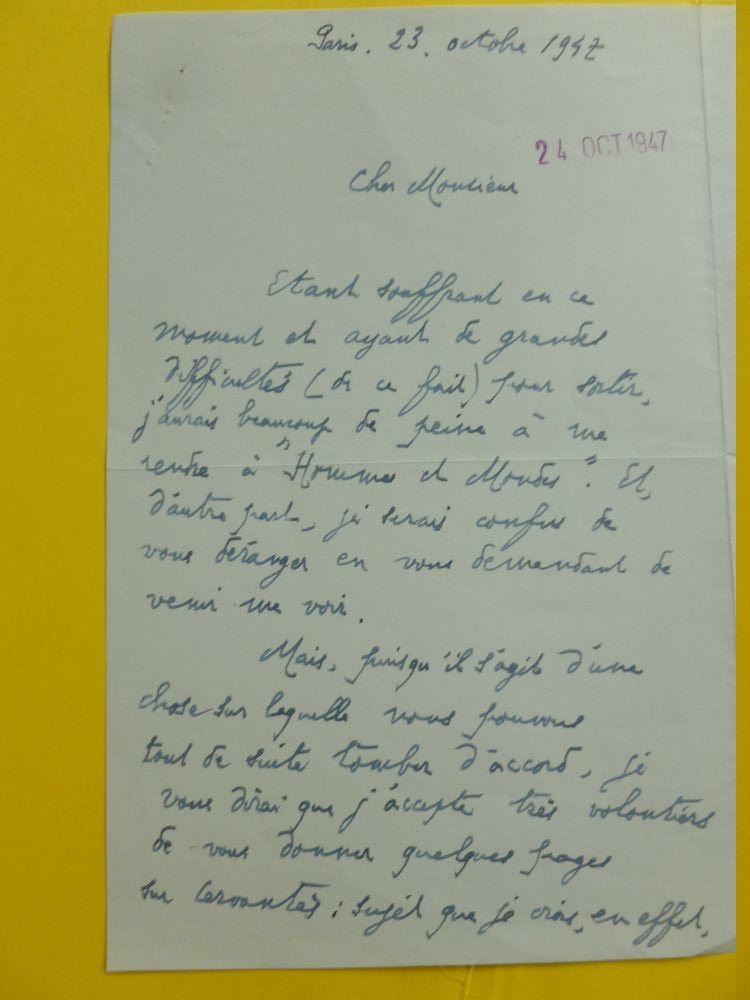 Paris. 23. octobre 1947
24 OCT 1947
Cher Monsieur
Etant souffrant en ce
moment et ayant de grandes
difficultés (de ce fait) pour sortir,
j'aurais beaucoup de peine à me
rendre à "Hommes et Mondes". Et,
d'autre part, je serais confus de
vous déranger en vous demandant de
venir me voir.
Mais, puisqu'il s'agit d'une
chose sur laquelle nous pouvons
tout de suite tomber d'accord, je
vous dirai que j'accepte très volontiers
de vous donner quelques pages
sur Cervantès; sujet que je crois, en effet,